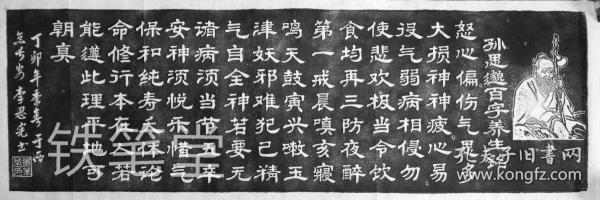 孙思邈百字养生
怒心偏伤气思多
大损神神疲心易
役气弱病相侵勿
使悲欢极当令饮
食均再三防夜醉
第一戒晨嗔亥寝
鸣天鼓寅兴嗽玉
津妖邪难犯己精
气自全神若要无
诸病须当节五辛
安神须悦乐惜气
保和纯寿夭休论
命修行本在人若
能遵此理平地可
朝真
丁卯年季春于西
李思 书
铁笔堂
孔子旧书网
www.kongfz.com